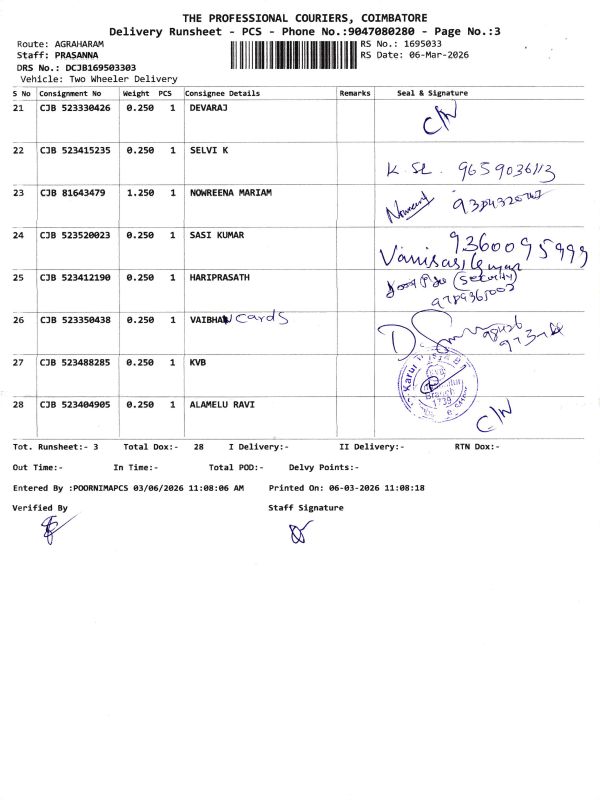 THE PROFESSIONAL COURIERS, COIMBATORE
Delivery Runsheet - PCS - Phone No.:9047080280 - Page No.:3
Route: AGRAHARAM
RS No.: 1695033
Staff: PRASANNA
RS Date: 06-Mar-2026
DRS No.: DCJB169503303
Vehicle: Two Wheeler Delivery
S No Consignment No Weight PCS Consignee Details Remarks Seal & Signature
21 CJB 523330426 0.250 1 DEVARAJ C/N
22 CJB 523415235 0.250 1 SELVI K
K. SL. 9659036113
23 CJB 81643479 1.250 1 NOWREENA MARIAM
24 CJB 523520023 0.250 1 SASI KUMAR 9360095999
25 CJB 523412190 0.250 1 HARIPRASATH (Security)
26 CJB 523350438 0.250 1 VAIBHAV Cards
27 CJB 523488285 0.250 1 KVB
28 CJB 523404905 0.250 1 ALAMELU RAVI C/N
Tot. Runsheet:- 3 Total Dox:- 28 I Delivery:- II Delivery:- RTN Dox:-
Out Time:- In Time:- Total POD:- Delvy Points:-
Entered By :POORNIMAPCS 03/06/2026 11:08:06 AM Printed On: 06-03-2026 11:08:18
Verified By Staff Signature